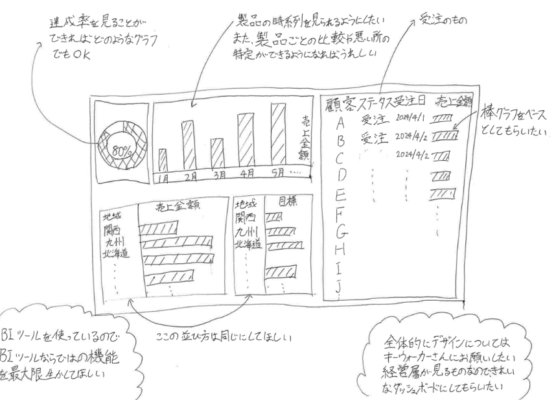 達成率を見ることが
できればどのようなグラフ
でもOK
製品の時系列を見られるようにしたい
また、製品ごとの比較や悪い所の
特定ができるようになればうれしい
受注のもの
80%
売上金額
1月 2月 3月 4月 5月 ....
顧客 ステータス 受注日 売上金額
A 受注 2024/4/1
B 受注 2024/4/2
C 2024/4/2
D
E
F
G
H
I
J
棒グラフをベース
としてもらいたい
地域 売上金額
関西
九州
北海道
地域 目標
関西
九州
北海道
ここの並び方は同じにしてほしい
BIツールを使っているので
BIツールならではの機能
を最大限生かしてほしい
全体的にデザインについては
キーウォーカーさんにお願いしたい
経営層が見るものなのできれい
なダッシュボードにしてもらいたい